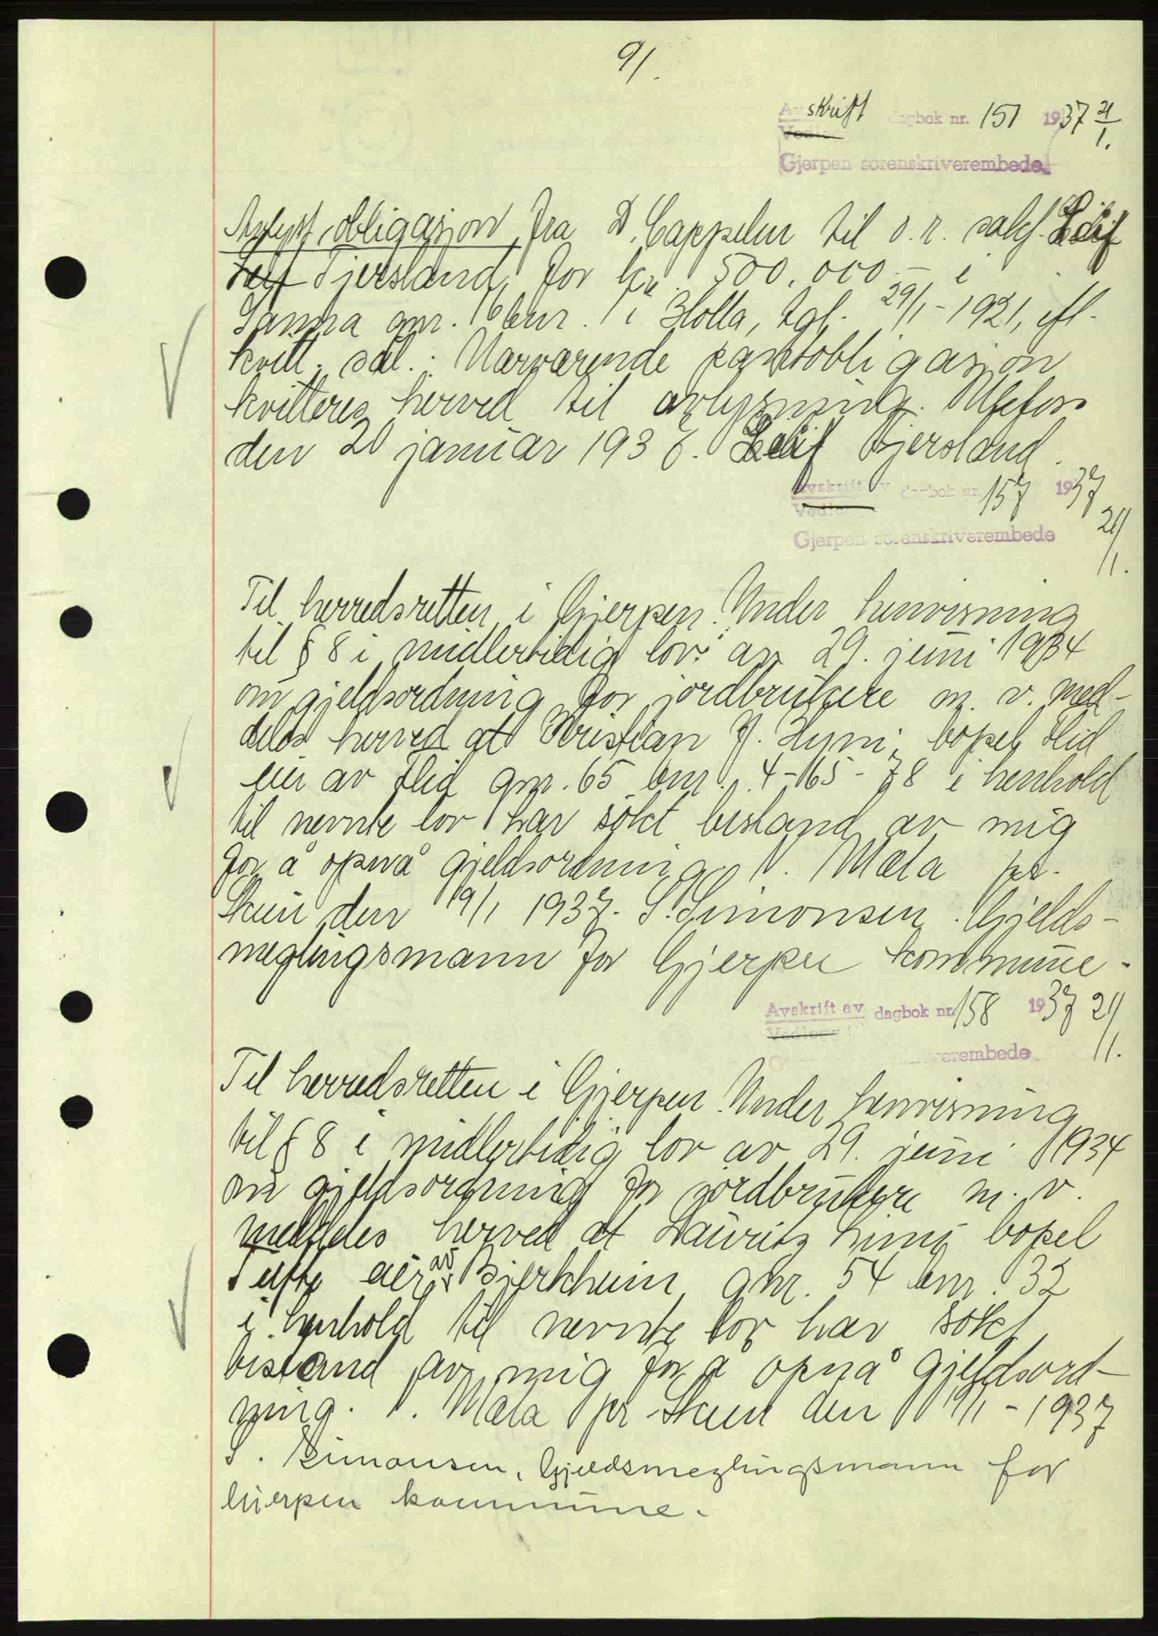 91.
Avskrift dagbok nr. 151 1937 21/1.
Vedl
Gjerpen sorenskriverembede
Avlyst, obligasjon fra D. Cappelen til o. r. sakf. Leif
Tjersland for kr. 500.000.- i
gnr. 16 bnr. 1 i Holla, tgl. 29/1-1921, efl.
kvitt. sål.: Nærværende pantobligasjon
kvitteres herved til avlysning. Ulefoss
den 20 januar 1936. Leif Tjersland.
Avskrift av dagbok nr. 157 1937
Vedl 21/1.
Gjerpen sorenskriverembede
Til herredsretten i Gjerpen. Under henvisning
til § 8 i midlertidig lov av 29. juni 1934
om gjeldsordning for jordbrukere m. v. med-
deles herved at Kristian J. bopel Flid
eier av Flid gnr. 65 bnr. 4-165-78 i henhold
til nevnte lov har søkt bistand av mig
for å opnå gjeldsordning. Mæla pr.
Skien den 19/1 1937. S. Simonsen. Gjelds-
meglingsmann for Gjerpen kommune.
Avskrift av dagbok nr. 158 1937 21/1.
Vedlegg
verembede
Til herredsretten i Gjerpen. Under henvisning
til § 8 i midlertidig lov av 29. juni 1934
om gjeldsordning for jordbrukere m. v.
meddeles herved at Lauritz bopel
Tufte eier av Bjerkheim gnr. 54 bnr. 32
i henhold til nevnte lov har søkt
bistand av mig for å opnå gjeldsord-
ning. Mæla pr Skien den 19/1-1937
S. Simonsen, Gjeldsmeglingsmann for
Gjerpen kommune.